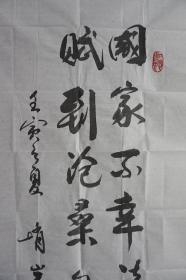 國家不幸詩
賦到滄桑句
壬寅之夏